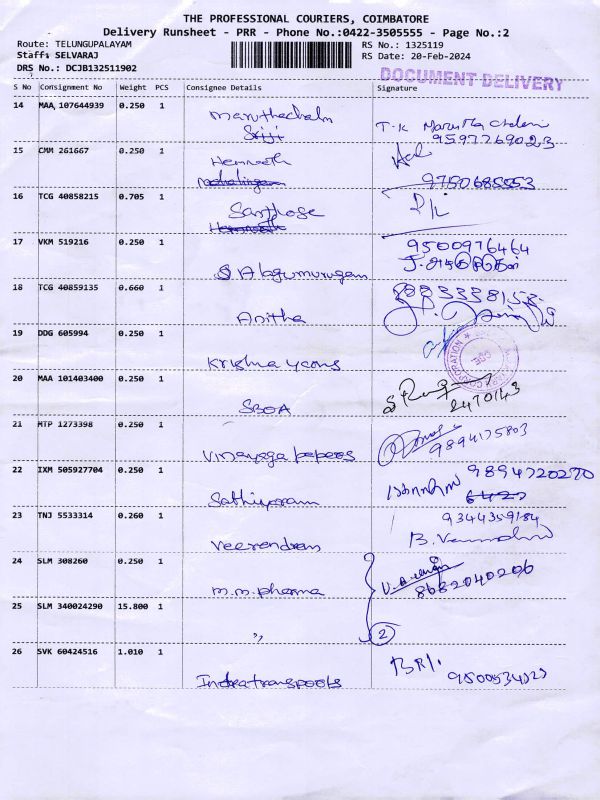 THE PROFESSIONAL COURIERS, COIMBATORE
Delivery Runsheet - PRR - Phone No.:0422-3505555 - Page No.:2
Route: TELUNGUPALAYAM RS No.: 1325119
Staff: SELVARAJ RS Date: 20-Feb-2024
DRS No.: DCJB132511902
DOCUMENT DELIVERY
S No Consignment No Weight PCS Consignee Details Signature
14 MAA 107644939 0.250 1 Maruthachalm
Sriji
9597769023
15 CMM 261667 0.250 1 Hemnath
9750685053
16 TCG 40858215 0.705 1 Santhose
Hemnath
17 VKM 519216 0.250 1 S Alagumurugan
9500976464
18 TCG 40859135 0.660 1 Anitha
19 DDG 605994 0.250 1 Krishna ycons
CORPORATION
CBE
20 MAA 101403400 0.250 1 SBOA
2470143
21 MTP 1273398 0.250 1 Vinayaga papers
9894175803
22 IXM 505927704 0.250 1 Sathiyaram
9894720270
6422
23 TNJ 5533314 0.260 1 Veerendran
9344359184
24 SLM 308260 0.250 1 m.m.pharma
8682040206
25 SLM 340024290 15.800 1 "
2
26 SVK 60424516 1.010 1 Indratranspoots